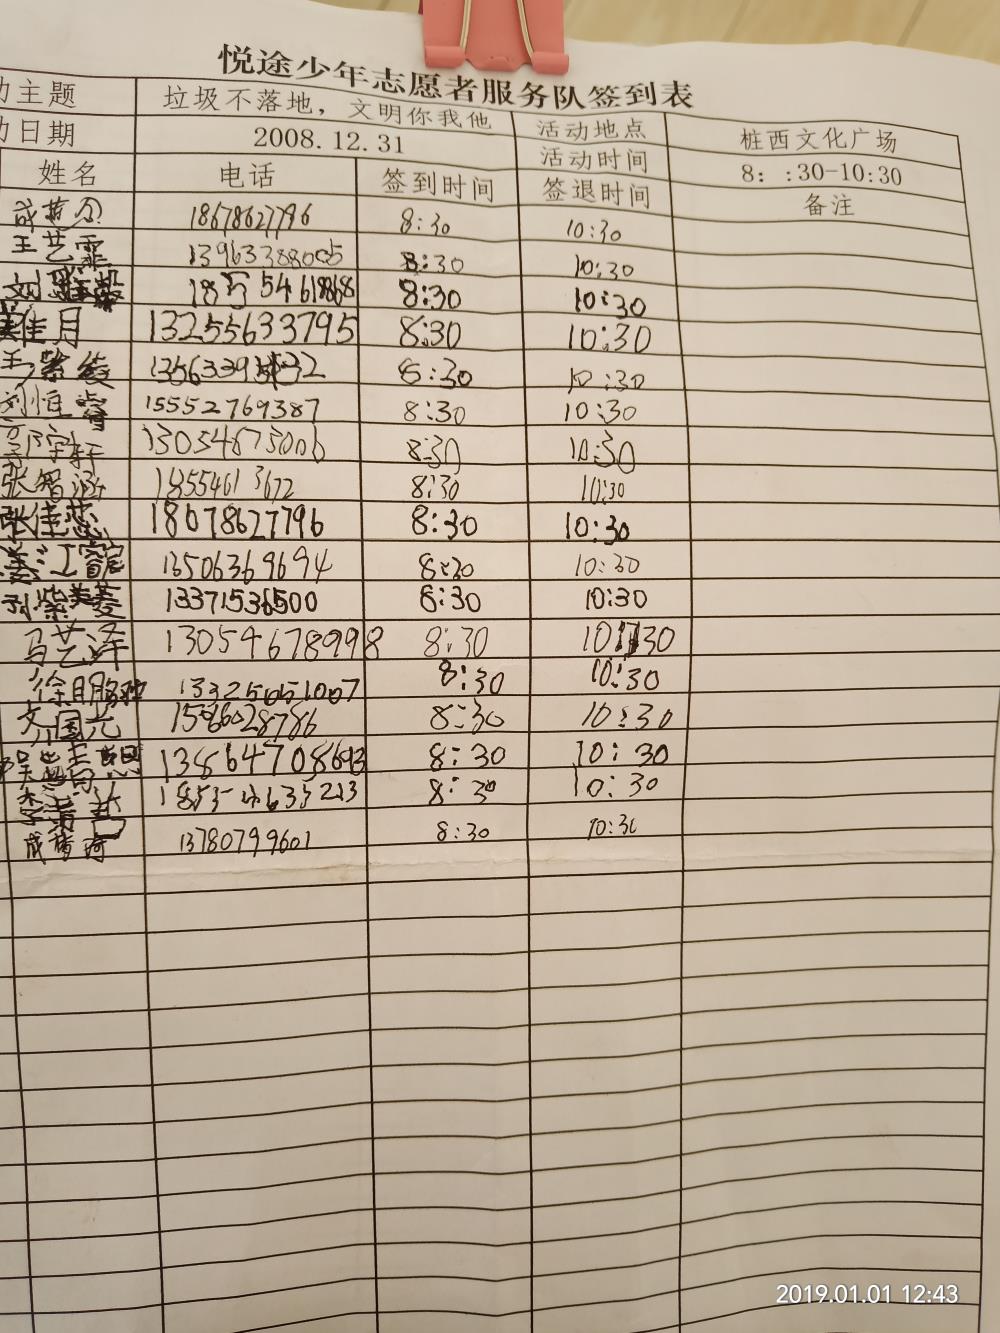 悦途少年志愿者服务队签到表
动主题 垃圾不落地，文明你我他 活动地点 桩西文化广场
动日期 2008.12.31 活动时间 8：:30-10:30
姓名 电话 签到时间 签退时间 备注
18678627796 8:30 10:30
王艺霏 13963388005 8:30 10:30
刘 8:30 10:30
佳月 13255633795 8:30 10:30
王紫绫 8:30 10:30
刘恒睿 15552769387 8:30 10:30
宇轩 13054673006 8:30 10:30
张智涵 18554613672 8:30 10:30
张佳慧 18078627796 8:30 10:30
姜江 13506369694 8:30 10:30
刘紫菱 13371536500 8:30 10:30
马艺泽 13054678998 8:30 10:30
徐 13325051007 8:30 10:30
齐国元 8:30 10:30
8:30 10:30
李 8:30 10:30
成 13780799601 8:30 10:30
2019.01.01 12:43